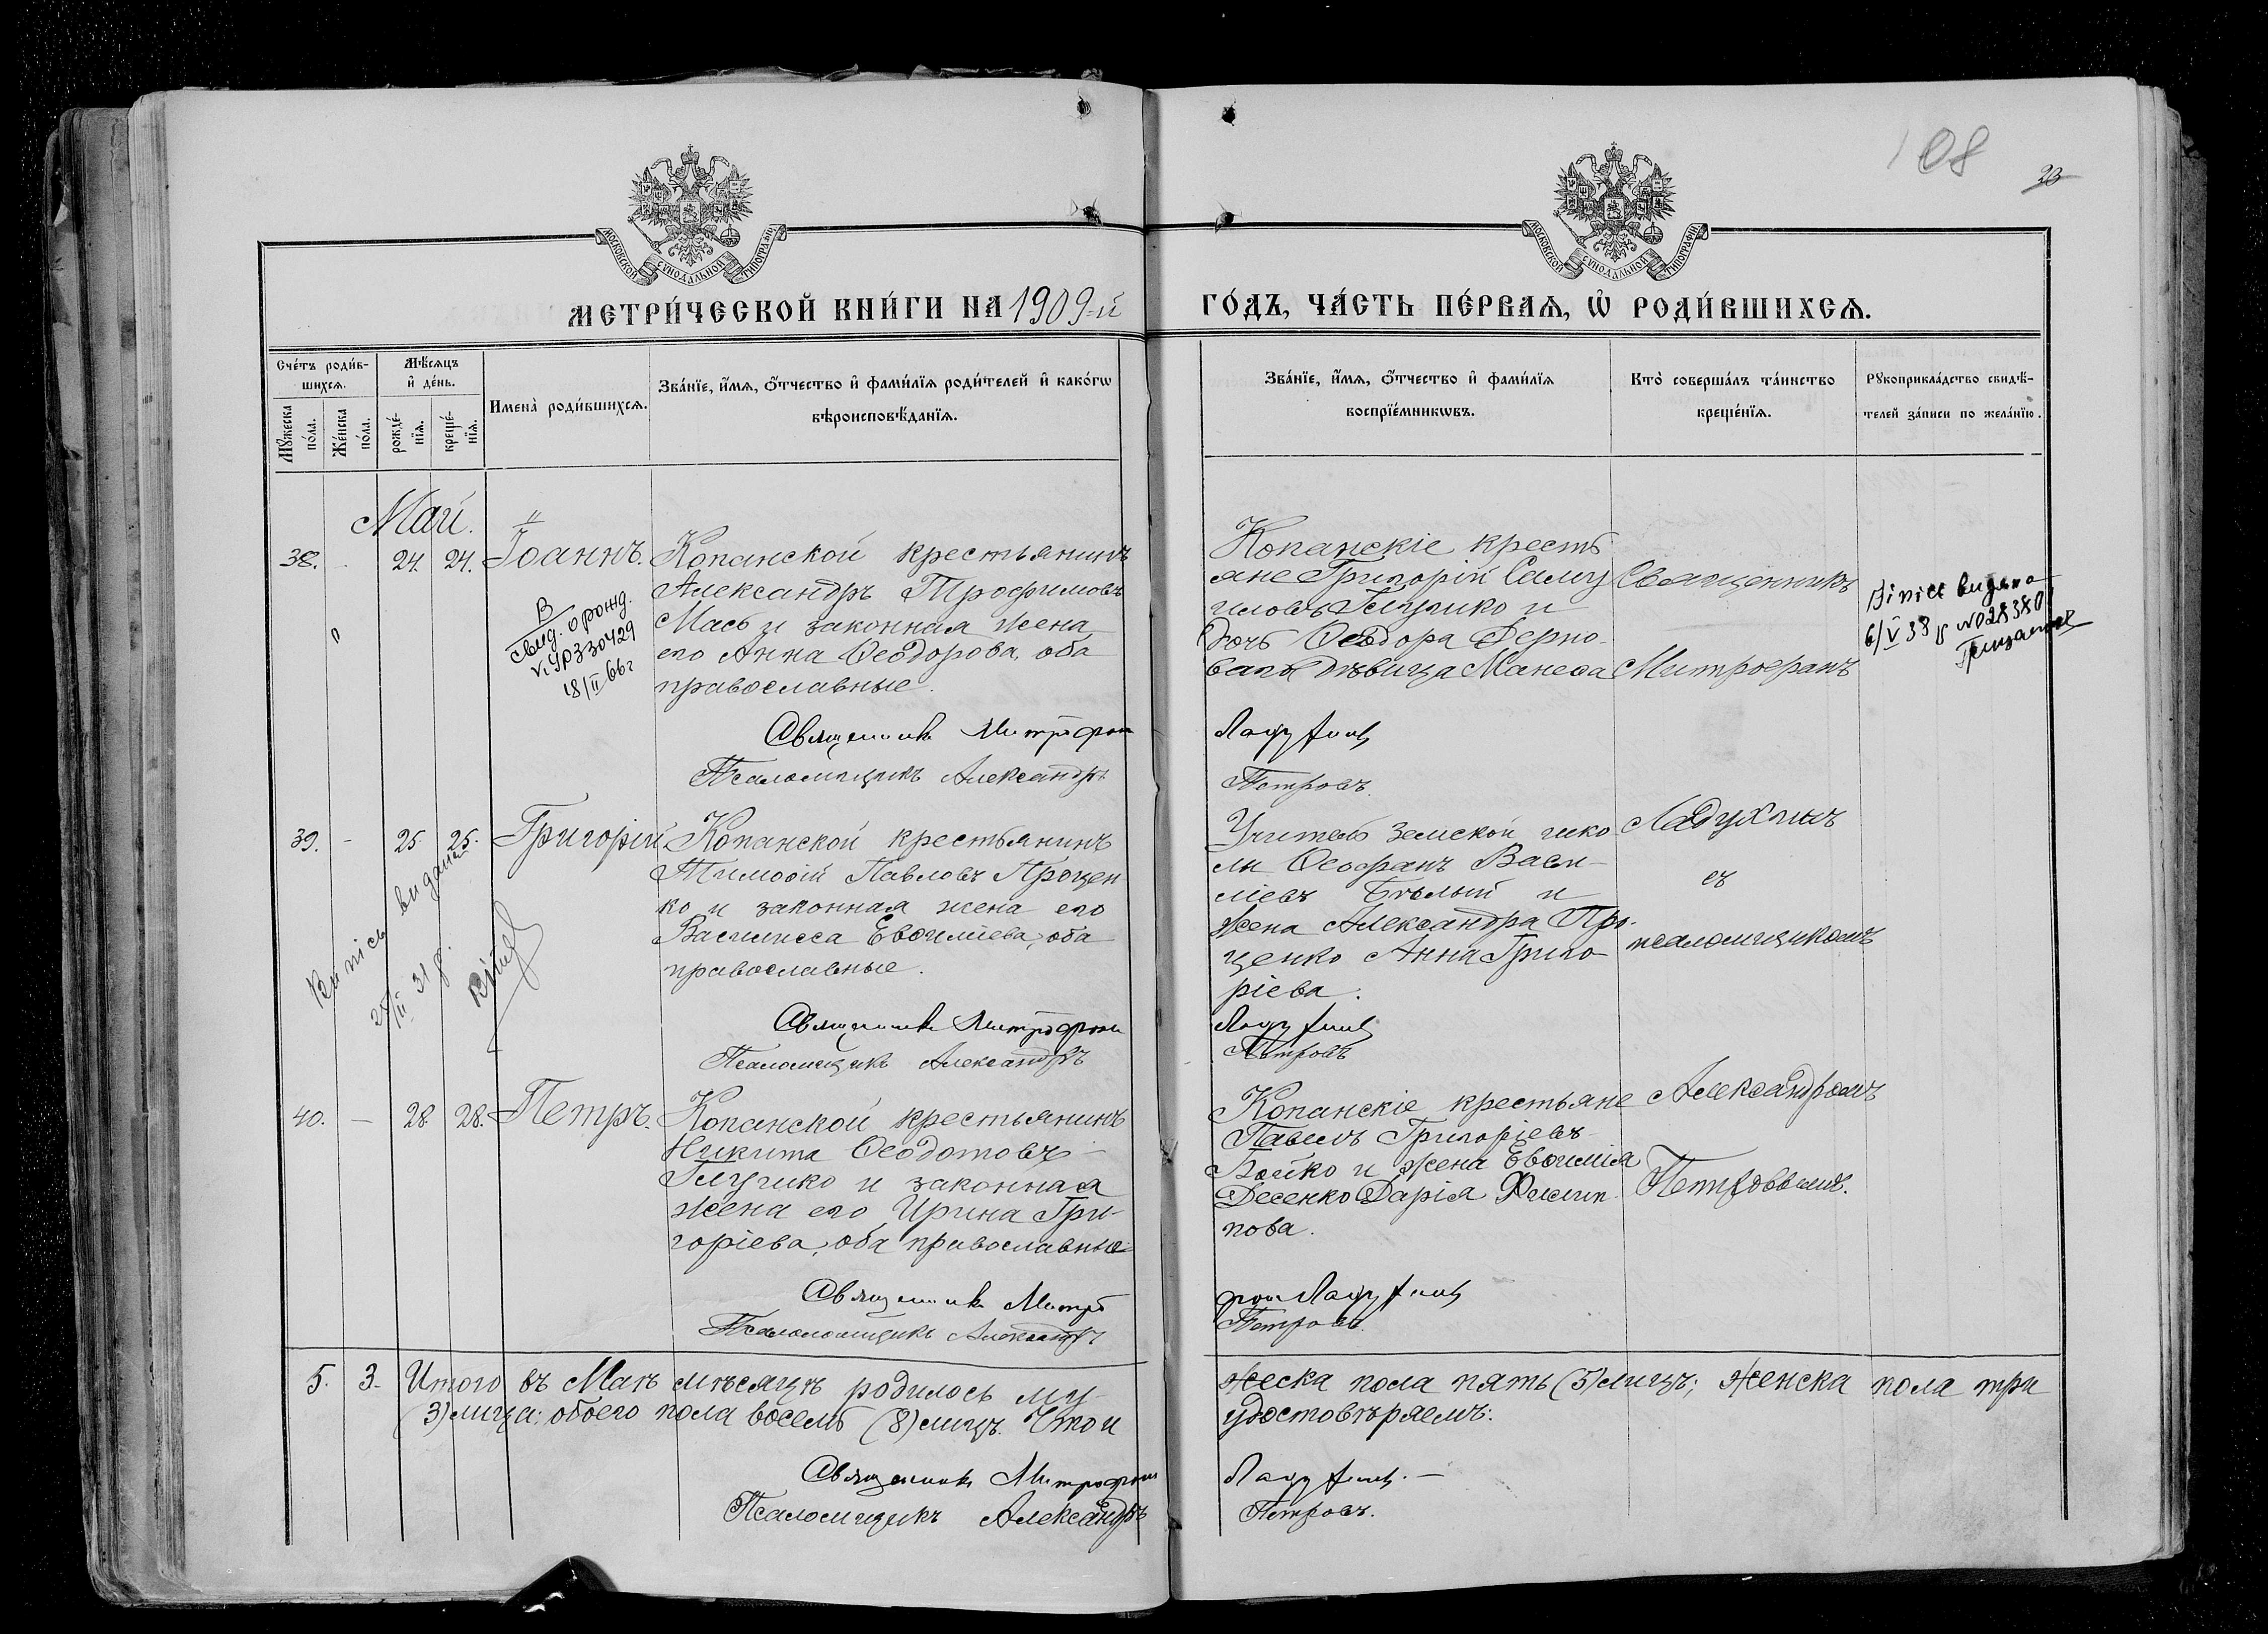 108
23
МОСКОВСКОЙ СУНОДАЛЬНОЙ ТИПОГРАФІИ
МОСКОВСКОЙ СУНОДАЛЬНОЙ ТИПОГРАФІИ
МЕТРИ́ЧЕСКОЙ КНИ́ГИ НА 1909-й
ГО́ДЪ, ЧА́СТЬ ПЕ́РВАѦ, Ѽ РОДИ́ВШИХСѦ.
Сче́тъ роди́в-
шихсѧ.
Мꙋжеска по́ла.
Же́нска по́ла.
Мѣ́сѧцъ
и҆ де́нь.
рожде́-
нїѧ.
креще́-
нїѧ.
Имена̀ роди́вшихсѧ.
Зва́нїе, и҆́мѧ, ѻ҆́тчество и҆ фами́лїѧ роди́телей и҆ како́гѡ
вѣроисповѣ́данїѧ.
Зва́нїе, и҆́мѧ, ѻ҆́тчество и҆ фами́лїѧ
воспрїе́мникѡвъ.
Кто̀ соверша́лъ та́инство
креще́нїѧ.
Рꙋкоприкла́дство свидѣ́-
телей за́писи по жела́нїю.
Май.
38. 24. 24. Іоаннъ.
Копанской крестьянинъ
Александръ Трофимовъ
Мась и законная жена
его Анна Ѳеодорова, оба
православные.
В
свид. о рожд.
VI УРЗ 30429
18/II 66г
Священникъ Митрофан
Псаломщикъ Александръ
Копанскіе кресть
яне Григорій Саму
иловъ Глушко и
дочь Ѳеодора
дѣвица
Ладухинъ
Петровъ.
Священникъ
Митрофанъ
Ладухинъ
съ
псаломщикомъ
Александромъ
Петровымъ.
Випис видано
6/V 38 №028380
39. - 25. 25. Григорій
Копанской крестьянинъ
Тимоѳій Павловъ Процен
ко и законная жена его
Василисса Евѳиміева, оба
православные.
Випись видана
25/III 31 р.
Священникъ Митрофан
Псаломщикъ Александръ
Учитель земской шко
лы Ѳеофанъ Васи-
ліевъ Бѣлый и
жена Александра Про-
ценко Анна Григо-
ріева.
Ладухинъ
Петровъ
40. — 28. 28. Петръ.
Копанской крестьянинъ
Никита Ѳеодотовъ
Глушко и законная
жена его Ирина Гри-
горіева, оба православные
Священникъ Митро
Псаломщикъ Александръ
Копанскіе крестьяне
Павелъ Григоріевъ
Бойко и жена Евѳимія
Десенко Дарія Филип
пова.
фан Ладухинъ
Петровъ.
5. 3. Итого въ Маѣ мѣсяцѣ родилось му-
жеска пола пять (5) лицъ; женска пола три
(3) лица; обоего пола восемь (8) лицъ. Что и
удостовѣряемъ:
Священникъ Митрофан
Ладухинъ. —
Псаломщикъ Александръ
Петровъ.